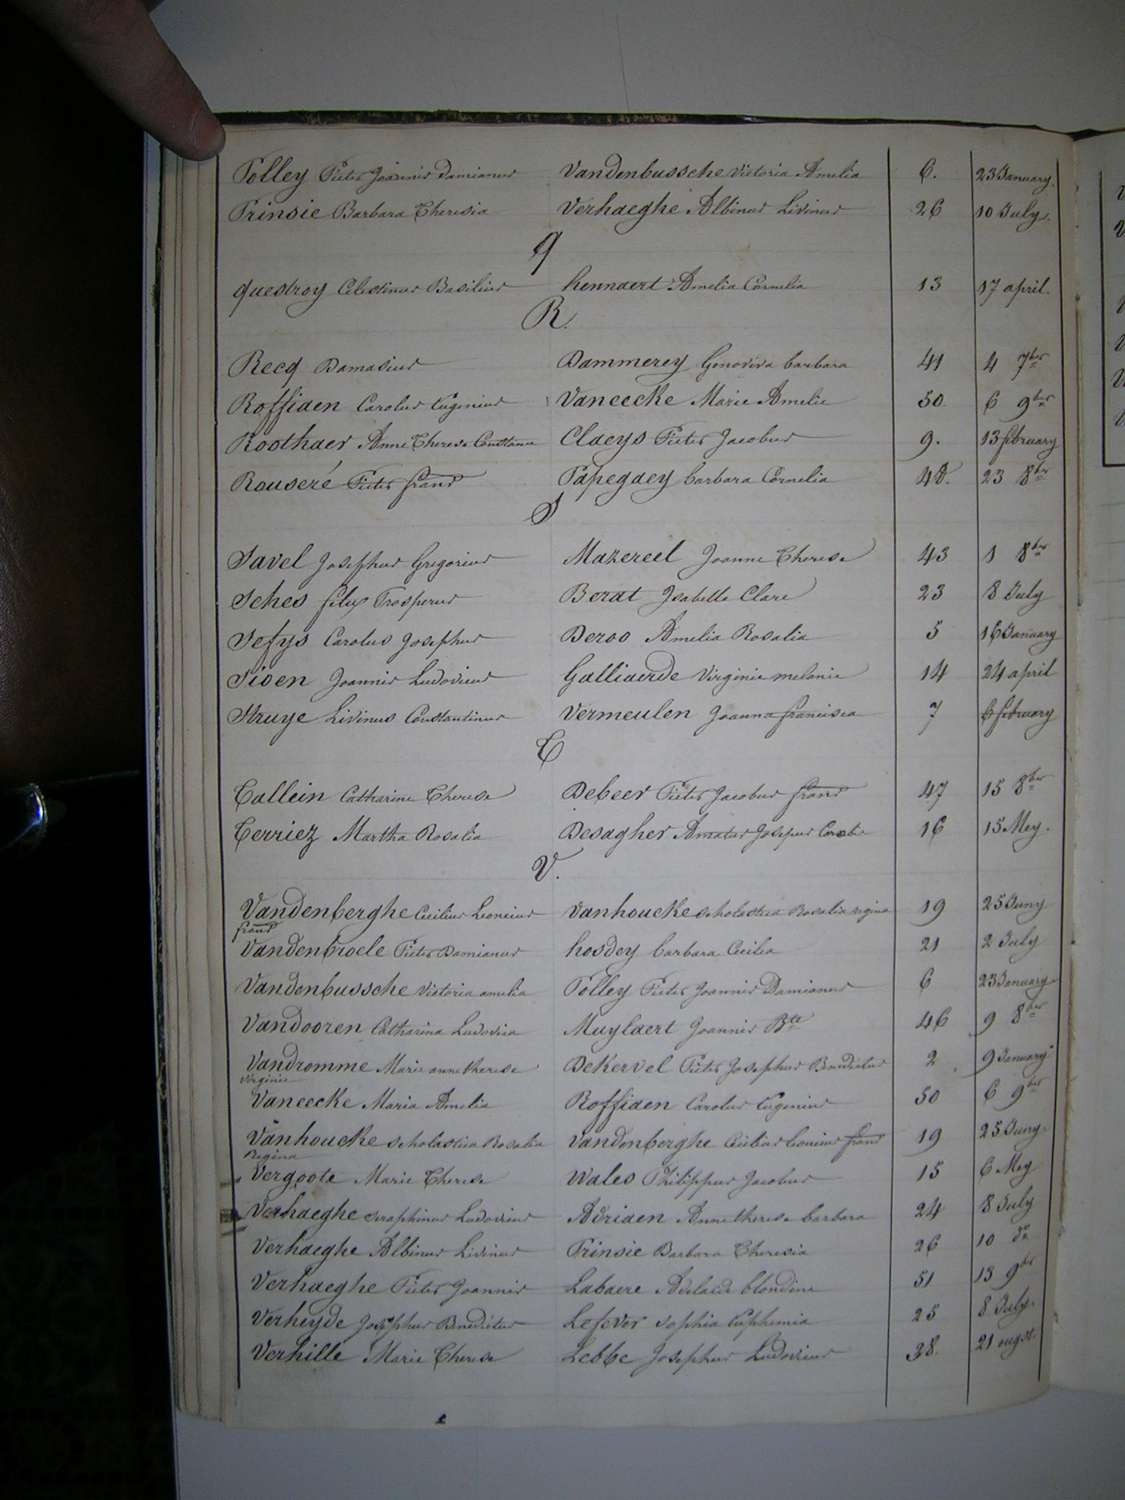 Polley Pieter Joannes Damianus Vandenbussche Victoria Amelia 6. 23 January.
Prinsie Barbara Theresia Verhaeghe Albinus Livinus 26 10 July.
Q
questroy Celestinus Basilius hennaert Amelia Cornelia 13 17 april.
R.
Recq Damasius Dammerey Genoviva barbara 41 4 7ber
Roffiaen Carolus Eugenius Vaneecke Marie Amelie 50. 6 9ber
Roothaer Anne Therese Constance Claeys Pieter Jacobus 9. 13 february
Rouseré Pieter frans Papegaey barbara Cornelia 48. 23 8ber
S
Savel Josephus Gregorius Mazereel Joanne Therese 43 1 8ber
Sches felix Prosperus Berat Isabelle Clare 23 8 July
Sefys Carolus Josephus Deroo Amelia Rosalia 5 16 January
Sioen Joannes Ludovicus Galliaerde Virginie melanie 14 24 april
Struye Livinus Constantinus Vermeulen Joanna francisca 7 6 february
T
Tallein Catharine Therese Debeer Pieter Jacobus frans 47 15 8ber
Terriez Martha Rosalia Desagher Amatus Josepus 16 15 Mey.
V.
Vandenberghe Cecilius Leonius Vanhoucke scholastica Rosalia regina 19 25 Juny
frans
Vandenbroele Pieter Damianus hosdey barbara Cecilia 21 2 July
Vandenbussche Victoria amelia Polley Pieter Joannes Damianus 6 23 January
Vandooren Catharina Ludovica Muylaert Joannes Bte 46 9 8ber
Vandromme Marie anne therese Dekervel Pieter Josephus Benedictus 2 9 January
virginie
Vaneecke Maria Amelia Roffiaen Carolus Eugenius 50 6 9ber
Vanhoucke scholastica Rosalia Vandenberghe Cecilius leonius frans 19 25 Juny.
Regina
Vergoote Marie Therese Wales Philippus Jacobus 15 6 Mey
Verhaeghe seraphinus Ludovicus Adriaen Anne therese barbara 24 8 July
Verhaeghe Albinus Livinus Prinsie Barbara Theresia 26 10 do
Verhaeghe Pieter Joannes Labaere Adelaide blondine 51 13 9ber
Verheyde Josephus Benedictus Lefever sophia Euphemia 25 8 July.
Verhille Marie Therese Lebbe Josephus Ludovicus 38. 21 augst.